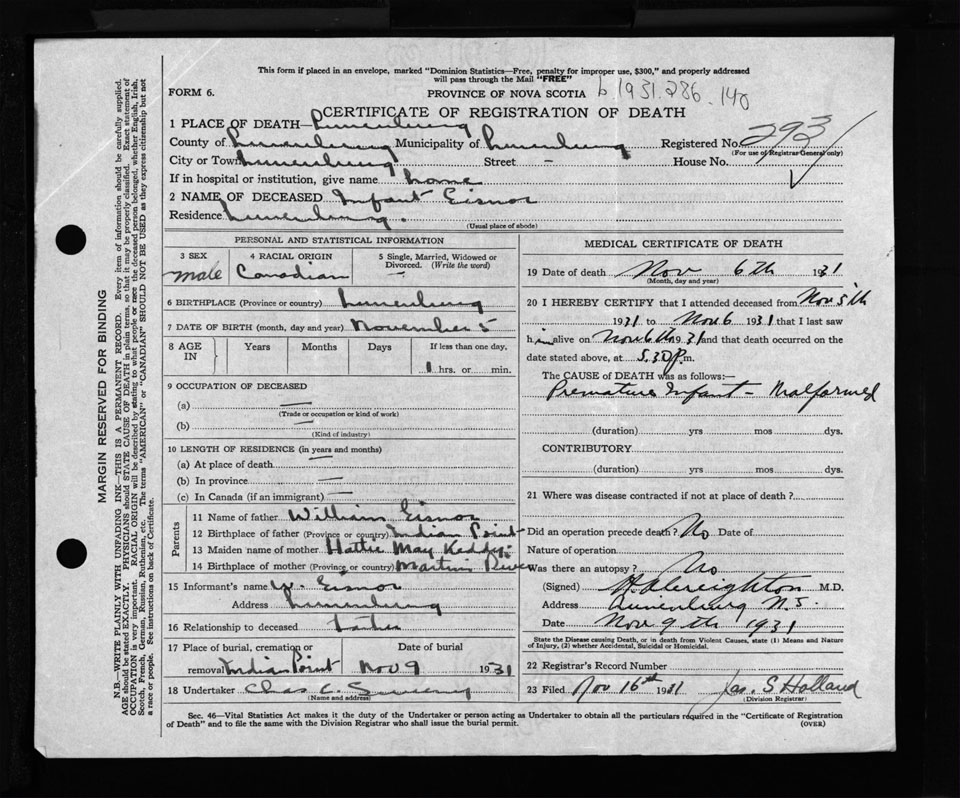 This form if placed in an envelope, marked "Dominion Statistics—Free, penalty for improper use, $300," and properly addressed
will pass through the Mail "FREE"
FORM 6.
PROVINCE OF NOVA SCOTIA b. 1931.286.140
CERTIFICATE OF REGISTRATION OF DEATH
1 PLACE OF DEATH—Lunenburg
County of Lunenburg Municipality of Lunenburg Registered No. 293
(For use of Registrar General only)
City or Town Lunenburg Street — House No.
If in hospital or institution, give name home
2 NAME OF DECEASED Infant Eisnor
Residence Lunenburg.
(Usual place of abode)
PERSONAL AND STATISTICAL INFORMATION
3 SEX 4 RACIAL ORIGIN 5 Single, Married, Widowed or Divorced. (Write the word)
male Canadian —
6 BIRTHPLACE (Province or country) Lunenburg
7 DATE OF BIRTH (month, day and year) November 5
8 AGE IN Years Months Days If less than one day,
hrs. or min.
9 OCCUPATION OF DECEASED
(a) —
(Trade or occupation or kind of work)
(b) —
(Kind of industry)
10 LENGTH OF RESIDENCE (in years and months)
(a) At place of death —
(b) In province —
(c) In Canada (if an immigrant) —
Parents
11 Name of father William Eisnor
12 Birthplace of father (Province or country) Indian Point
13 Maiden name of mother Hattie May Keddy
14 Birthplace of mother (Province or country) Martins River
15 Informant's name W. Eisnor
Address Lunenburg
16 Relationship to deceased father
17 Place of burial, cremation or Date of burial
removal Indian Point Nov 9 1931
18 Undertaker Chas C. Sweeny
(Name and address)
MEDICAL CERTIFICATE OF DEATH
19 Date of death Nov 6th 1931
(Month, day and year)
20 I HEREBY CERTIFY that I attended deceased from Nov 5th
1931 to Nov 6 1931 that I last saw
him alive on Nov 6th 1931 and that death occurred on the
date stated above, at 5.30 P.m.
The CAUSE of DEATH was as follows:—
Premature Infant — Malformed
(duration) yrs mos dys.
CONTRIBUTORY
(duration) yrs mos dys.
21 Where was disease contracted if not at place of death?
Did an operation precede death? No Date of
Nature of operation
Was there an autopsy? No
(Signed) H A Creighton M.D.
Address Lunenburg N.S.
Date Nov 9th 1931
State the Disease causing Death, or in death from Violent Causes, state (1) Means and Nature
of Injury, (2) whether Accidental, Suicidal or Homicidal.
22 Registrar's Record Number
23 Filed Nov 16th 1931 Jas. S Holland
(Division Registrar)
Sec. 46—Vital Statistics Act makes it the duty of the Undertaker or person acting as Undertaker to obtain all the particulars required in the "Certificate of Registration
of Death" and to file the same with the Division Registrar who shall issue the burial permit. (OVER)
MARGIN RESERVED FOR BINDING
N.B.—WRITE PLAINLY WITH UNFADING INK—THIS IS A PERMANENT RECORD. Every item of information should be carefully supplied.
AGE should be stated EXACTLY. PHYSICIANS should STATE CAUSE OF DEATH in plain terms, so that it may be properly classified. Exact statement of
OCCUPATION is very important. RACIAL ORIGIN will be described by stating to what people or race the deceased person belonged, whether English, Irish,
Scotch, French, German, Russian, Ruthenian, etc. The terms "AMERICAN" or "CANADIAN" SHOULD NOT BE USED as they express citizenship but not
a race or people. See instructions on back of Certificate.